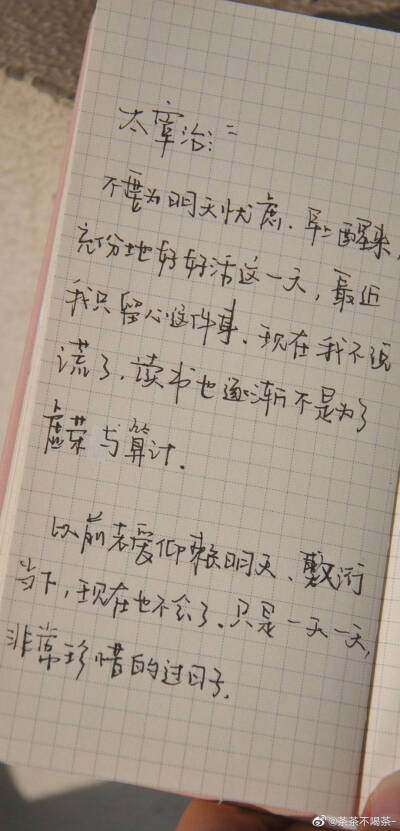 太宰治:
不要为明天忧虑、早上醒来,
充分地好好活这一天,最近
我只留心这件事、现在我不说
谎了,读书也逐渐不是为了
虚荣与算计.
以前老爱仰赖明天、敷衍
当下,现在也不会了、只是一天一天,
非常珍惜的过日子.
@茶茶不喝茶-